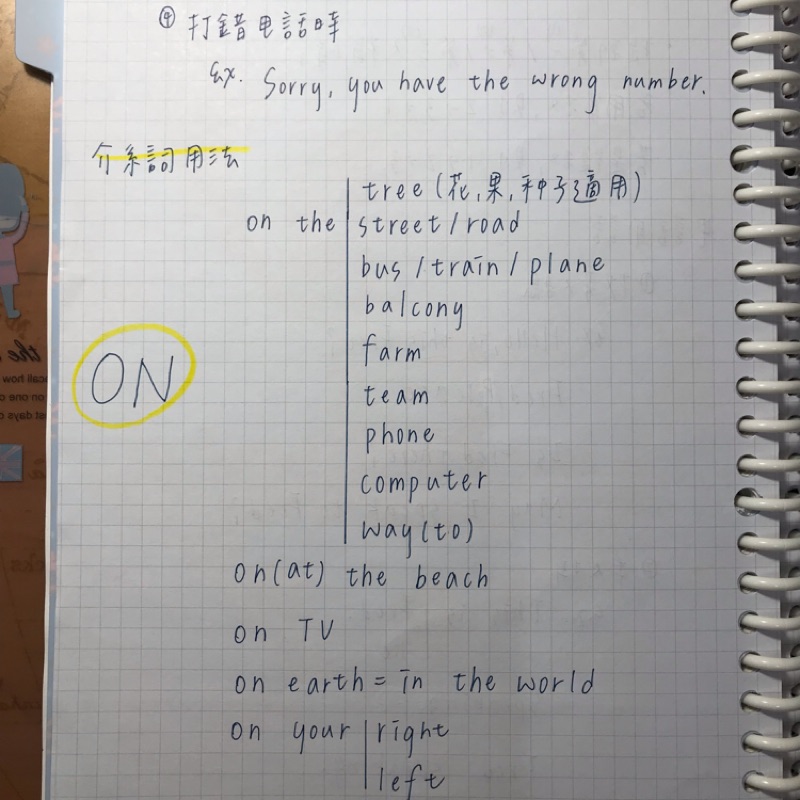 ④ 打錯电話時
Ex. Sorry, you have the wrong number.
介系詞用法
tree (花,果,种子適用)
on the street / road
bus / train / plane
balcony
farm
ON
team
phone
computer
way (to)
on (at) the beach
on TV
on earth = in the world
on your right
left